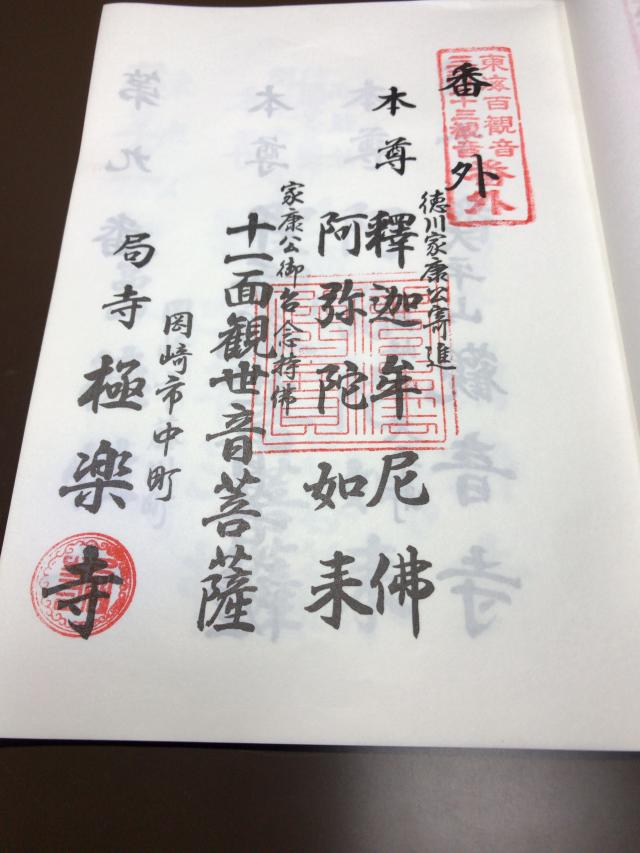 東海百観音
三十三観音番外
番外
徳川家康公寄進
本尊 釋迦牟尼佛
阿弥陀如来
家康公御台念持佛
十一面観世音菩薩
岡崎市中町
局寺 極楽寺